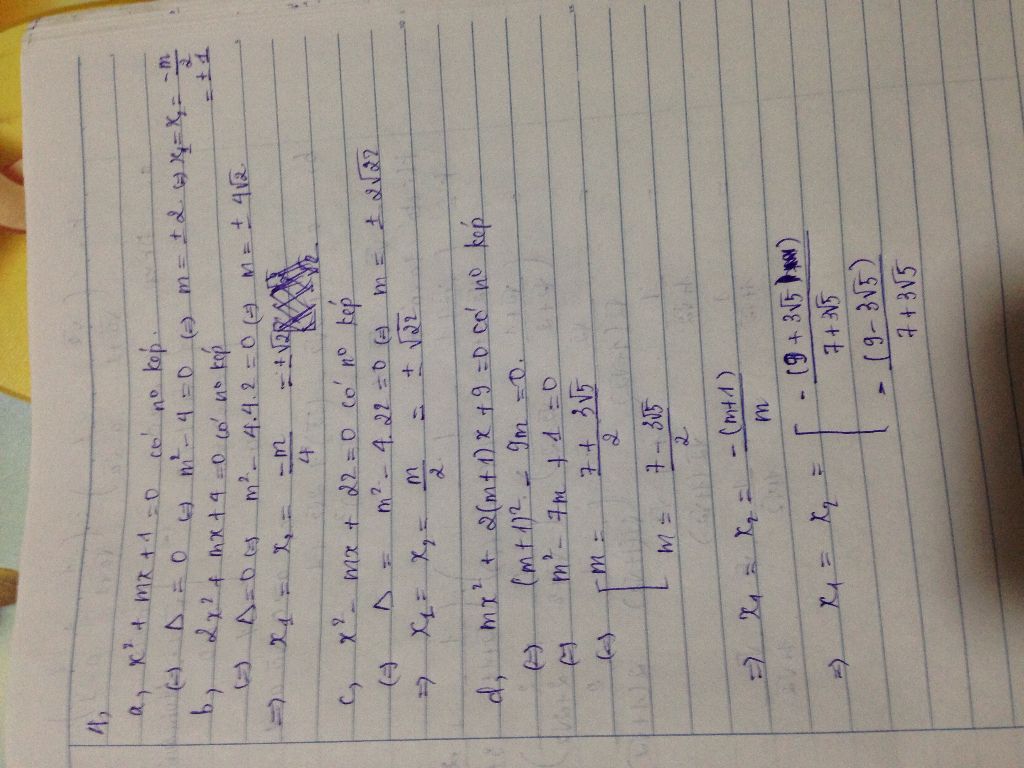 4,
a, x² + mx + 1 = 0 có n⁰ kép.
(=) Δ = 0 (=) m² - 4 = 0 (=) m = ± 2 (=) x₁ = x₂ = -m/2 = ± 1
b, 2x² + mx + 4 = 0 có n⁰ kép
(=) Δ = 0 (=) m² - 4.4.2 = 0 (=) m = ± 4√2.
=) x₁ = x₂ = -m/4 = ±√2
c, x² - mx + 22 = 0 có n⁰ kép
(=) Δ = m² - 4.22 = 0 (=) m = ± 2√22
=) x₁ = x₂ = m/2 = ± √22
d, mx² + 2(m+1)x + 9 = 0 có n⁰ kép
(=) (m+1)² - 9m = 0.
(=) m² - 7m + 1 = 0
(=) [ m = (7 + 3√5)/2
m = (7 - 3√5)/2
=) x₁ = x₂ = -(m+1)/m
=) x₁ = x₂ = [ -(9 + 3√5)/(7 + 3√5)
-(9 - 3√5)/(7 + 3√5)